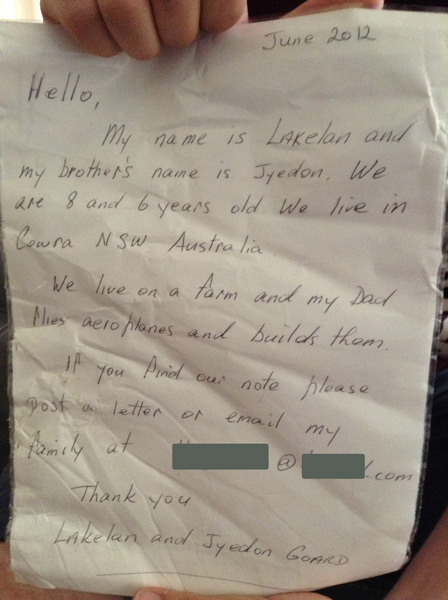 June 2012
Hello,
My name is Lakelan and
my brother's name is Jyedon. We
are 8 and 6 years old. We live in
Cowra NSW Australia
We live on a farm and my Dad
flies aeroplanes and builds them.
If you find our note please
post a letter or email my
family at @ .com
Thank you
Lakelan and Jyedon GOARD